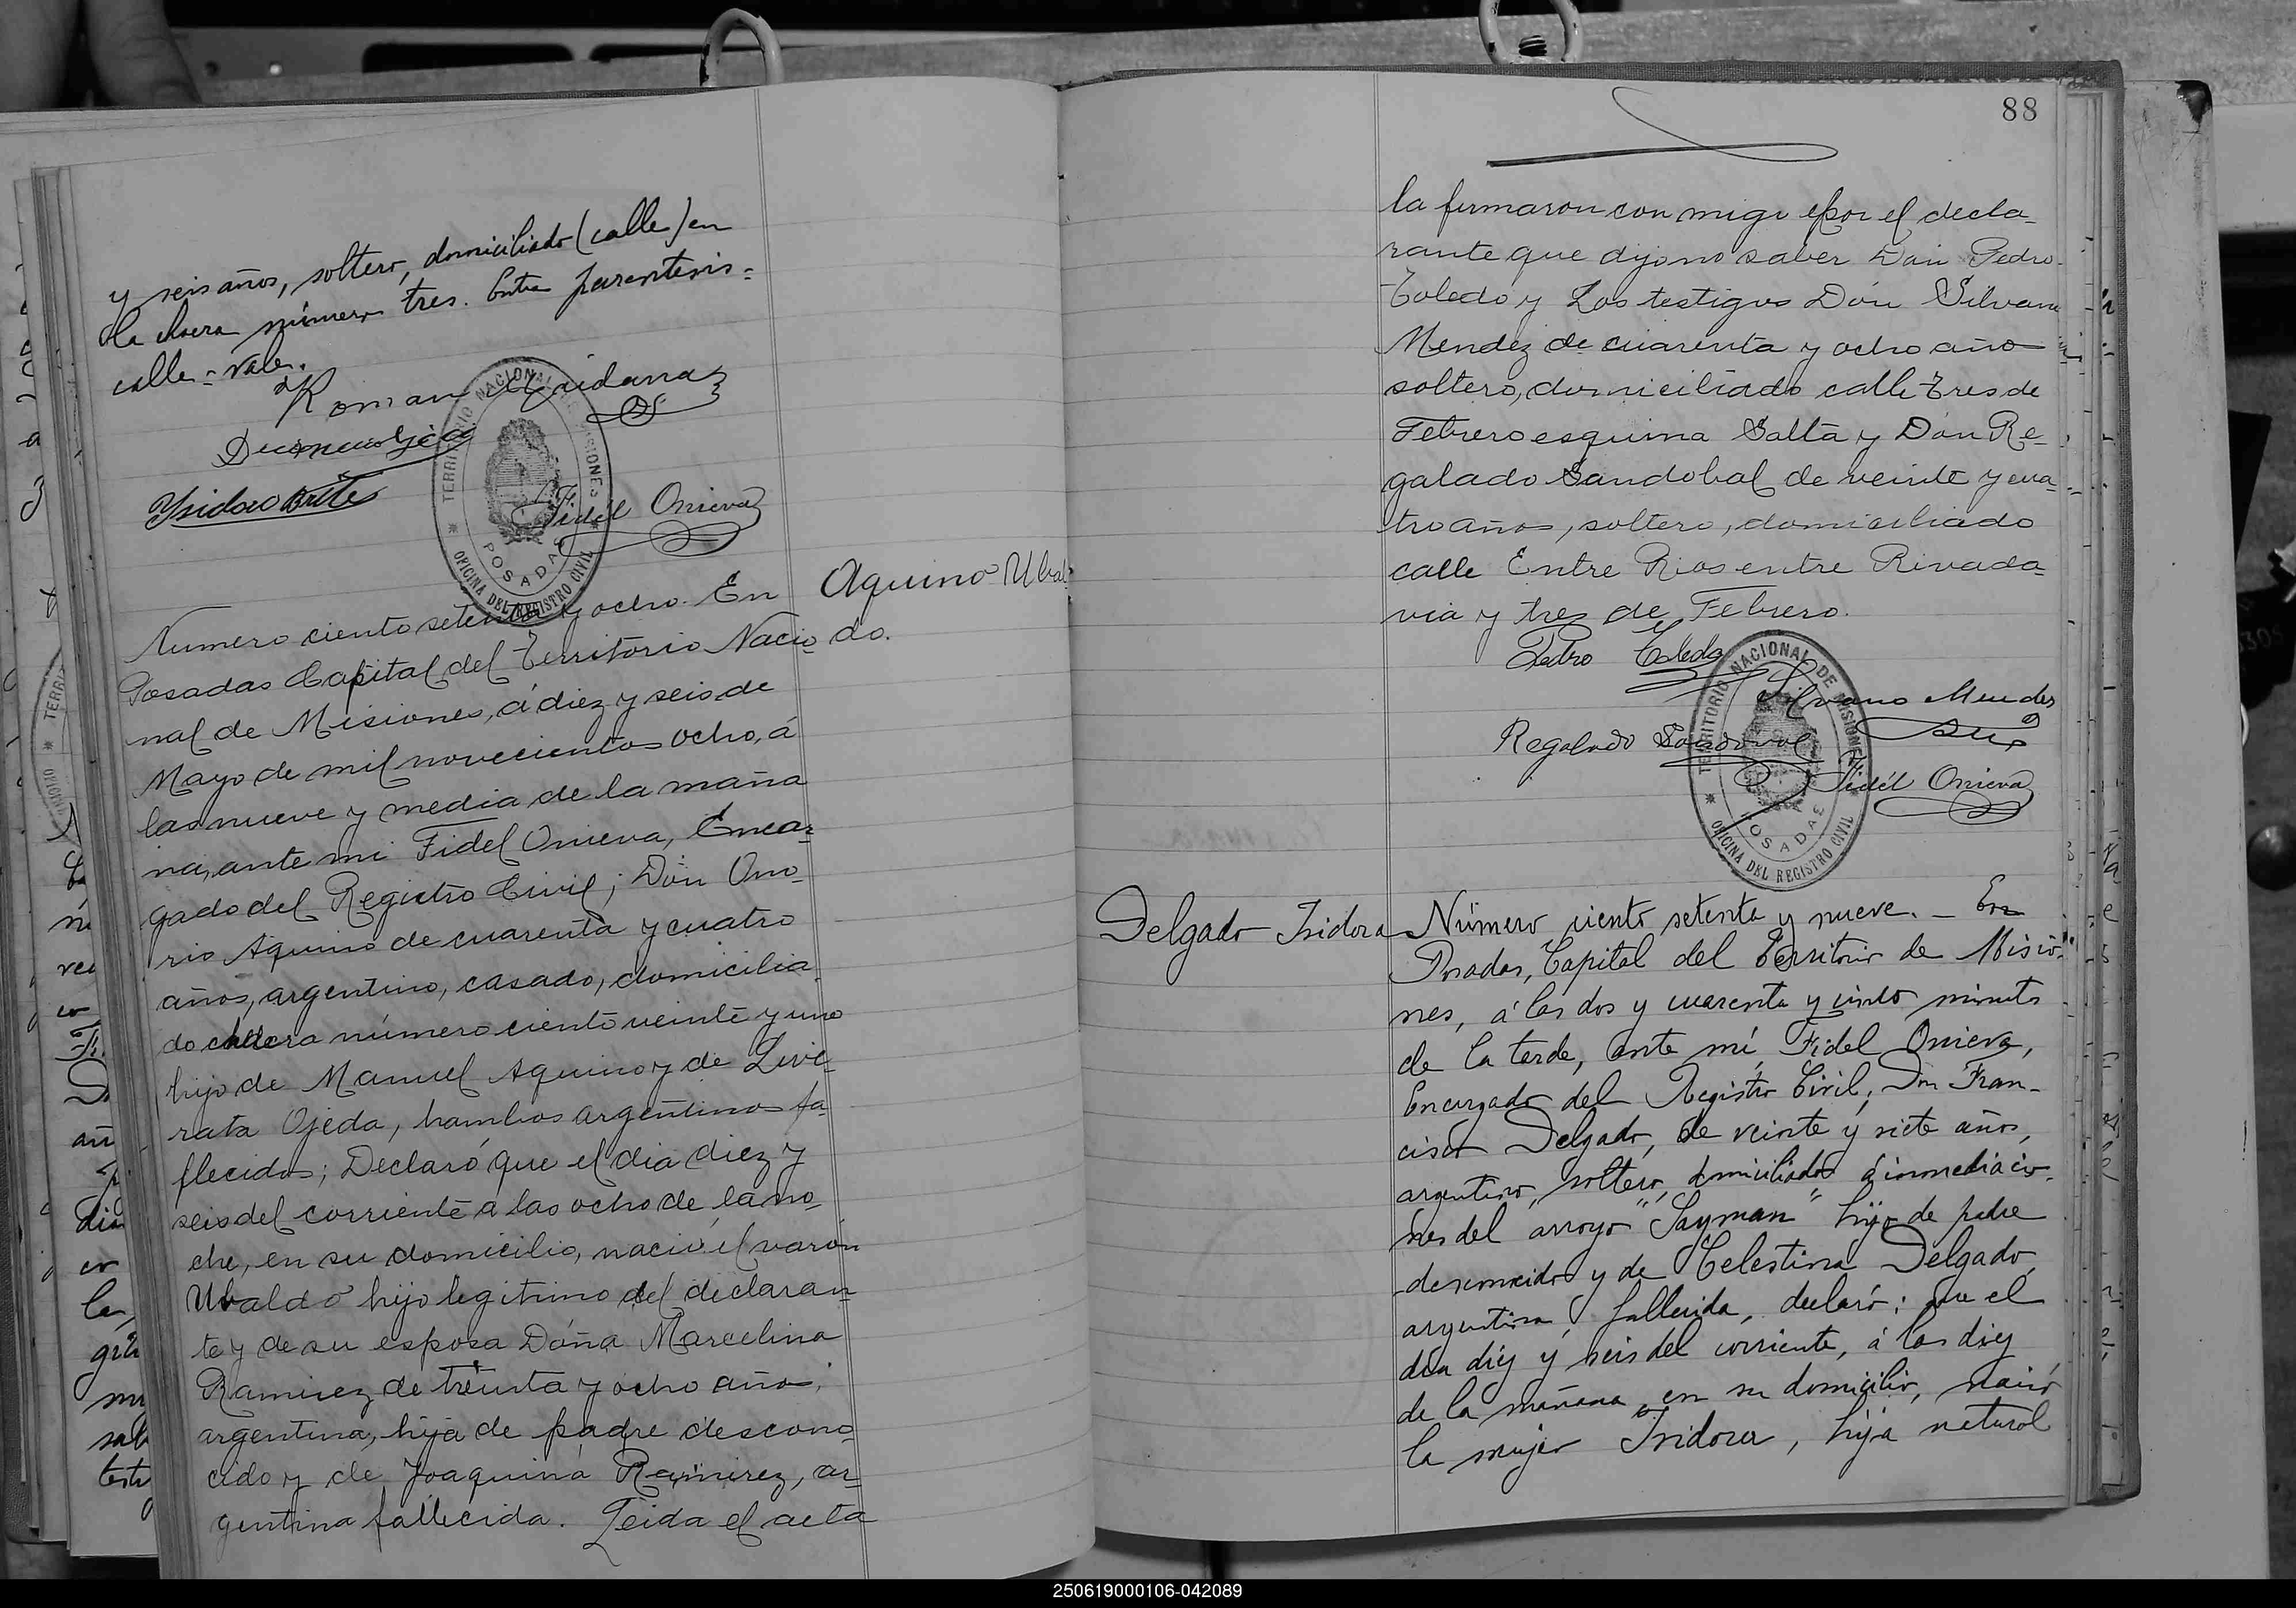 y seis años, soltero, domiciliado (calle) en
la chacra número tres. Entre parentesis =
calle = Vale.
Roman Maidana
Ysidoro Brites
Fidél Onieva
TERRITORIO NACIONAL DE MISIONES
POSADAS
OFICINA DEL REGISTRO CIVIL
Aquino Ubal-
do.
Numero ciento setenta y ocho. En
Posadas Capital del Territorio Nacio
nal de Misiones, á diez y seis de
Mayo de mil novecientos ocho, á
las nueve y media de la maña
na, ante mi Fidel Onieva, Encar
gado del Registro Civil; Dón Ono-
rio Aquino de cuarenta y cuatro
años, argentino, casado, domicilia
do chacra número ciento veinte y uno
hijo de Manuel Aquino y de Live-
rata Ojeda, hambos argentinos fa-
llecidos; Declaró que el dia diez y
seis del corriente a las ocho de la no-
che, en su domicilio, nació el varón
Ubaldo hijo legitimo del declaran
te y de su esposa Doña Marcelina
Ramirez de treinta y ocho años,
argentina, hija de padre descono-
cido y de Joaquina Ramirez, ar-
gentina fallecida. Leida el acta
88
la firmaron con migo y por el decla-
rante que dijo no saber Dón Pedro
Toledo y Los testigos Dón Silvano
Mendez de cuarenta y ocho año
soltero, domiciliado calle Tres de
Febrero esquina Salta y Dón Re-
galado Sandobal de veinte y cua-
tro años, soltero, domiciliado
calle Entre Rios entre Rivada
via y tres de Febrero.
Pedro Toledo
Silvano Mendes
Regalado Sandoval
Fidél Onieva
TERRITORIO NACIONAL DE MISIONES
POSADAS
OFICINA DEL REGISTRO CIVIL
Delgado Isidora
Número ciento setenta y nueve. _ En
Posadas, Capital del Territorio de Misio-
nes, á las dos y cuarenta y cinco minuts
de la tarde, ante mí, Fidel Onieva,
Encargado del Registro Civil; Don Fran-
cisco Delgado, de veinte y siete años,
argentino, soltero, domiciliado á inmediacio-
nes del arroyo "Sayman" hijo de padre
desconocido y de Celestina Delgado,
argentina, fallecida, declaró: que el
día diez y seis del corriente, á las diez
de la mañana, en su domicilio, nació
la mujer Isidora, hija natural
250619000106-042089